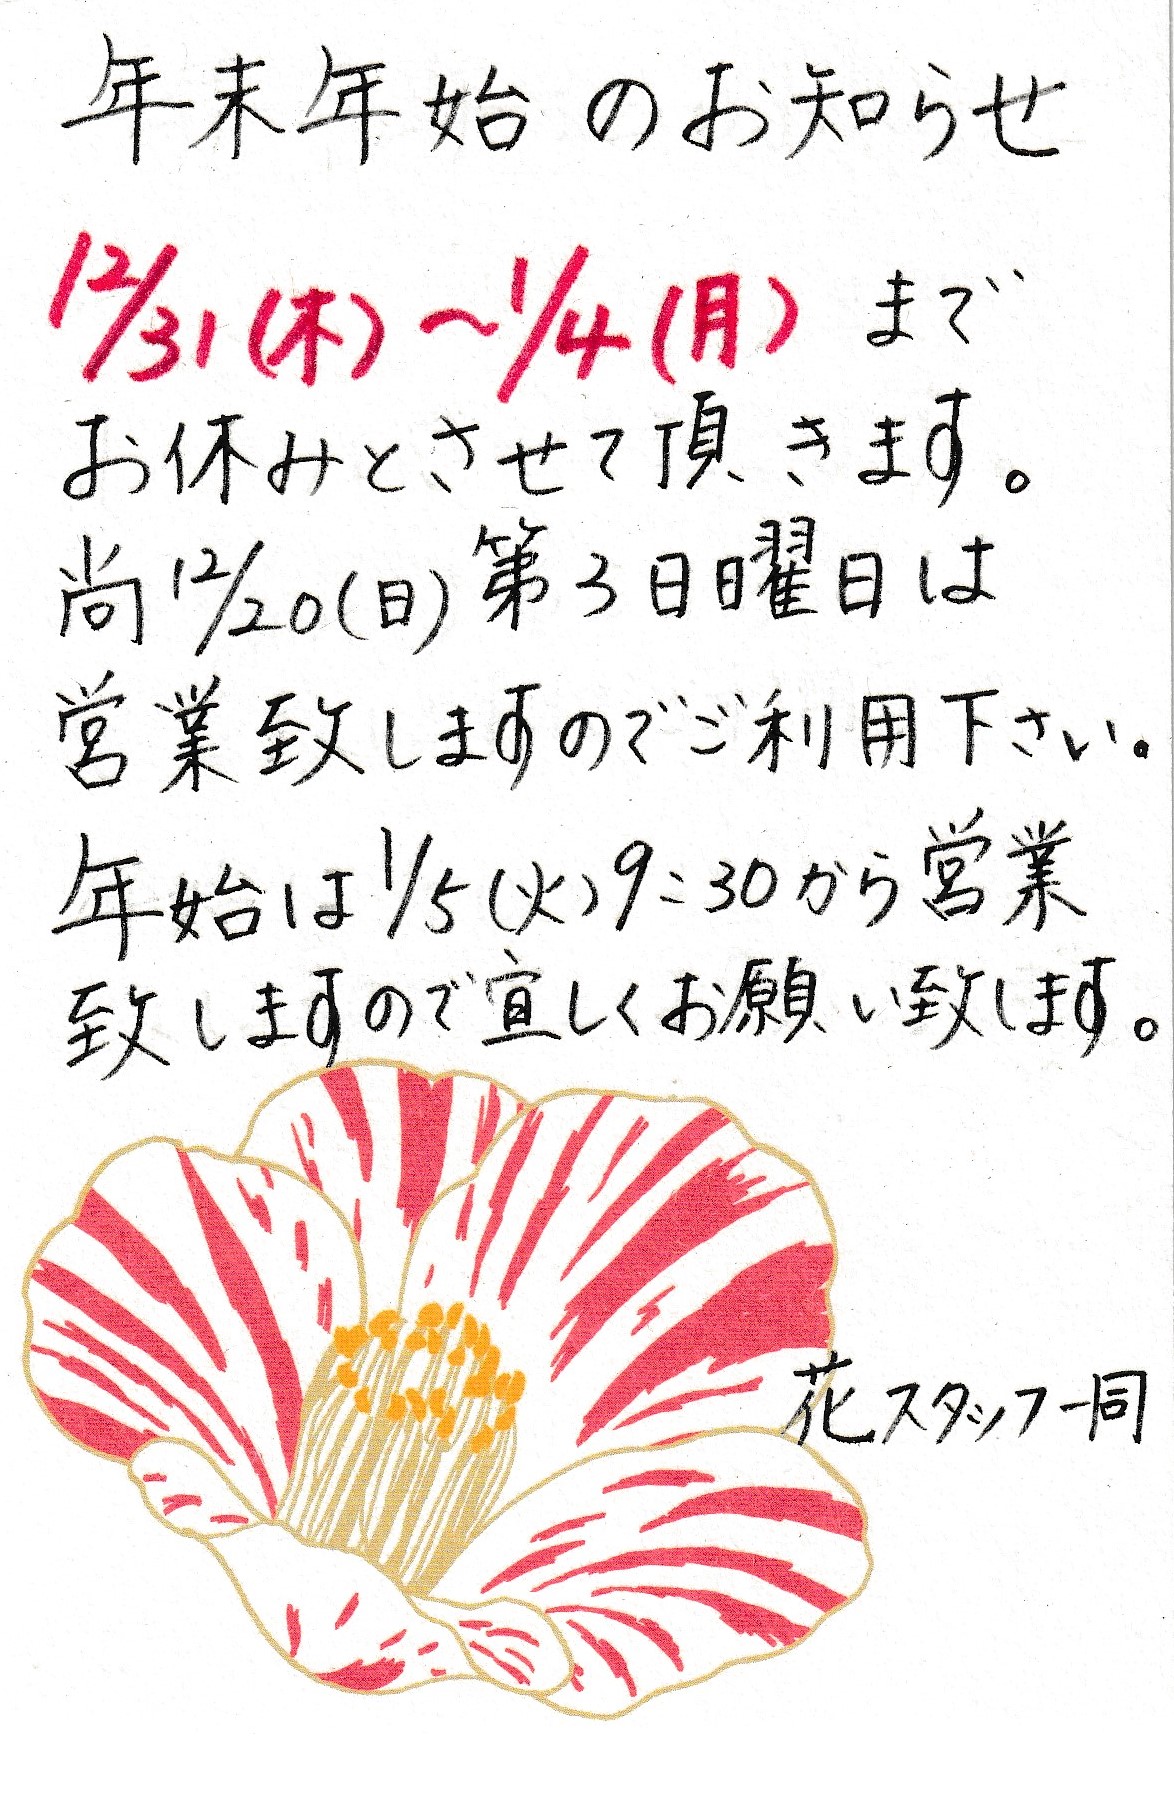 年末年始のお知らせ
12/31(木)～1/4(月)まで
お休みとさせて頂きます。
尚12/20(日)第3日曜日は
営業致しますのでご利用下さい。
年始は1/5(火)9:30から営業
致しますので宜しくお願い致します。
花スタッフ一同